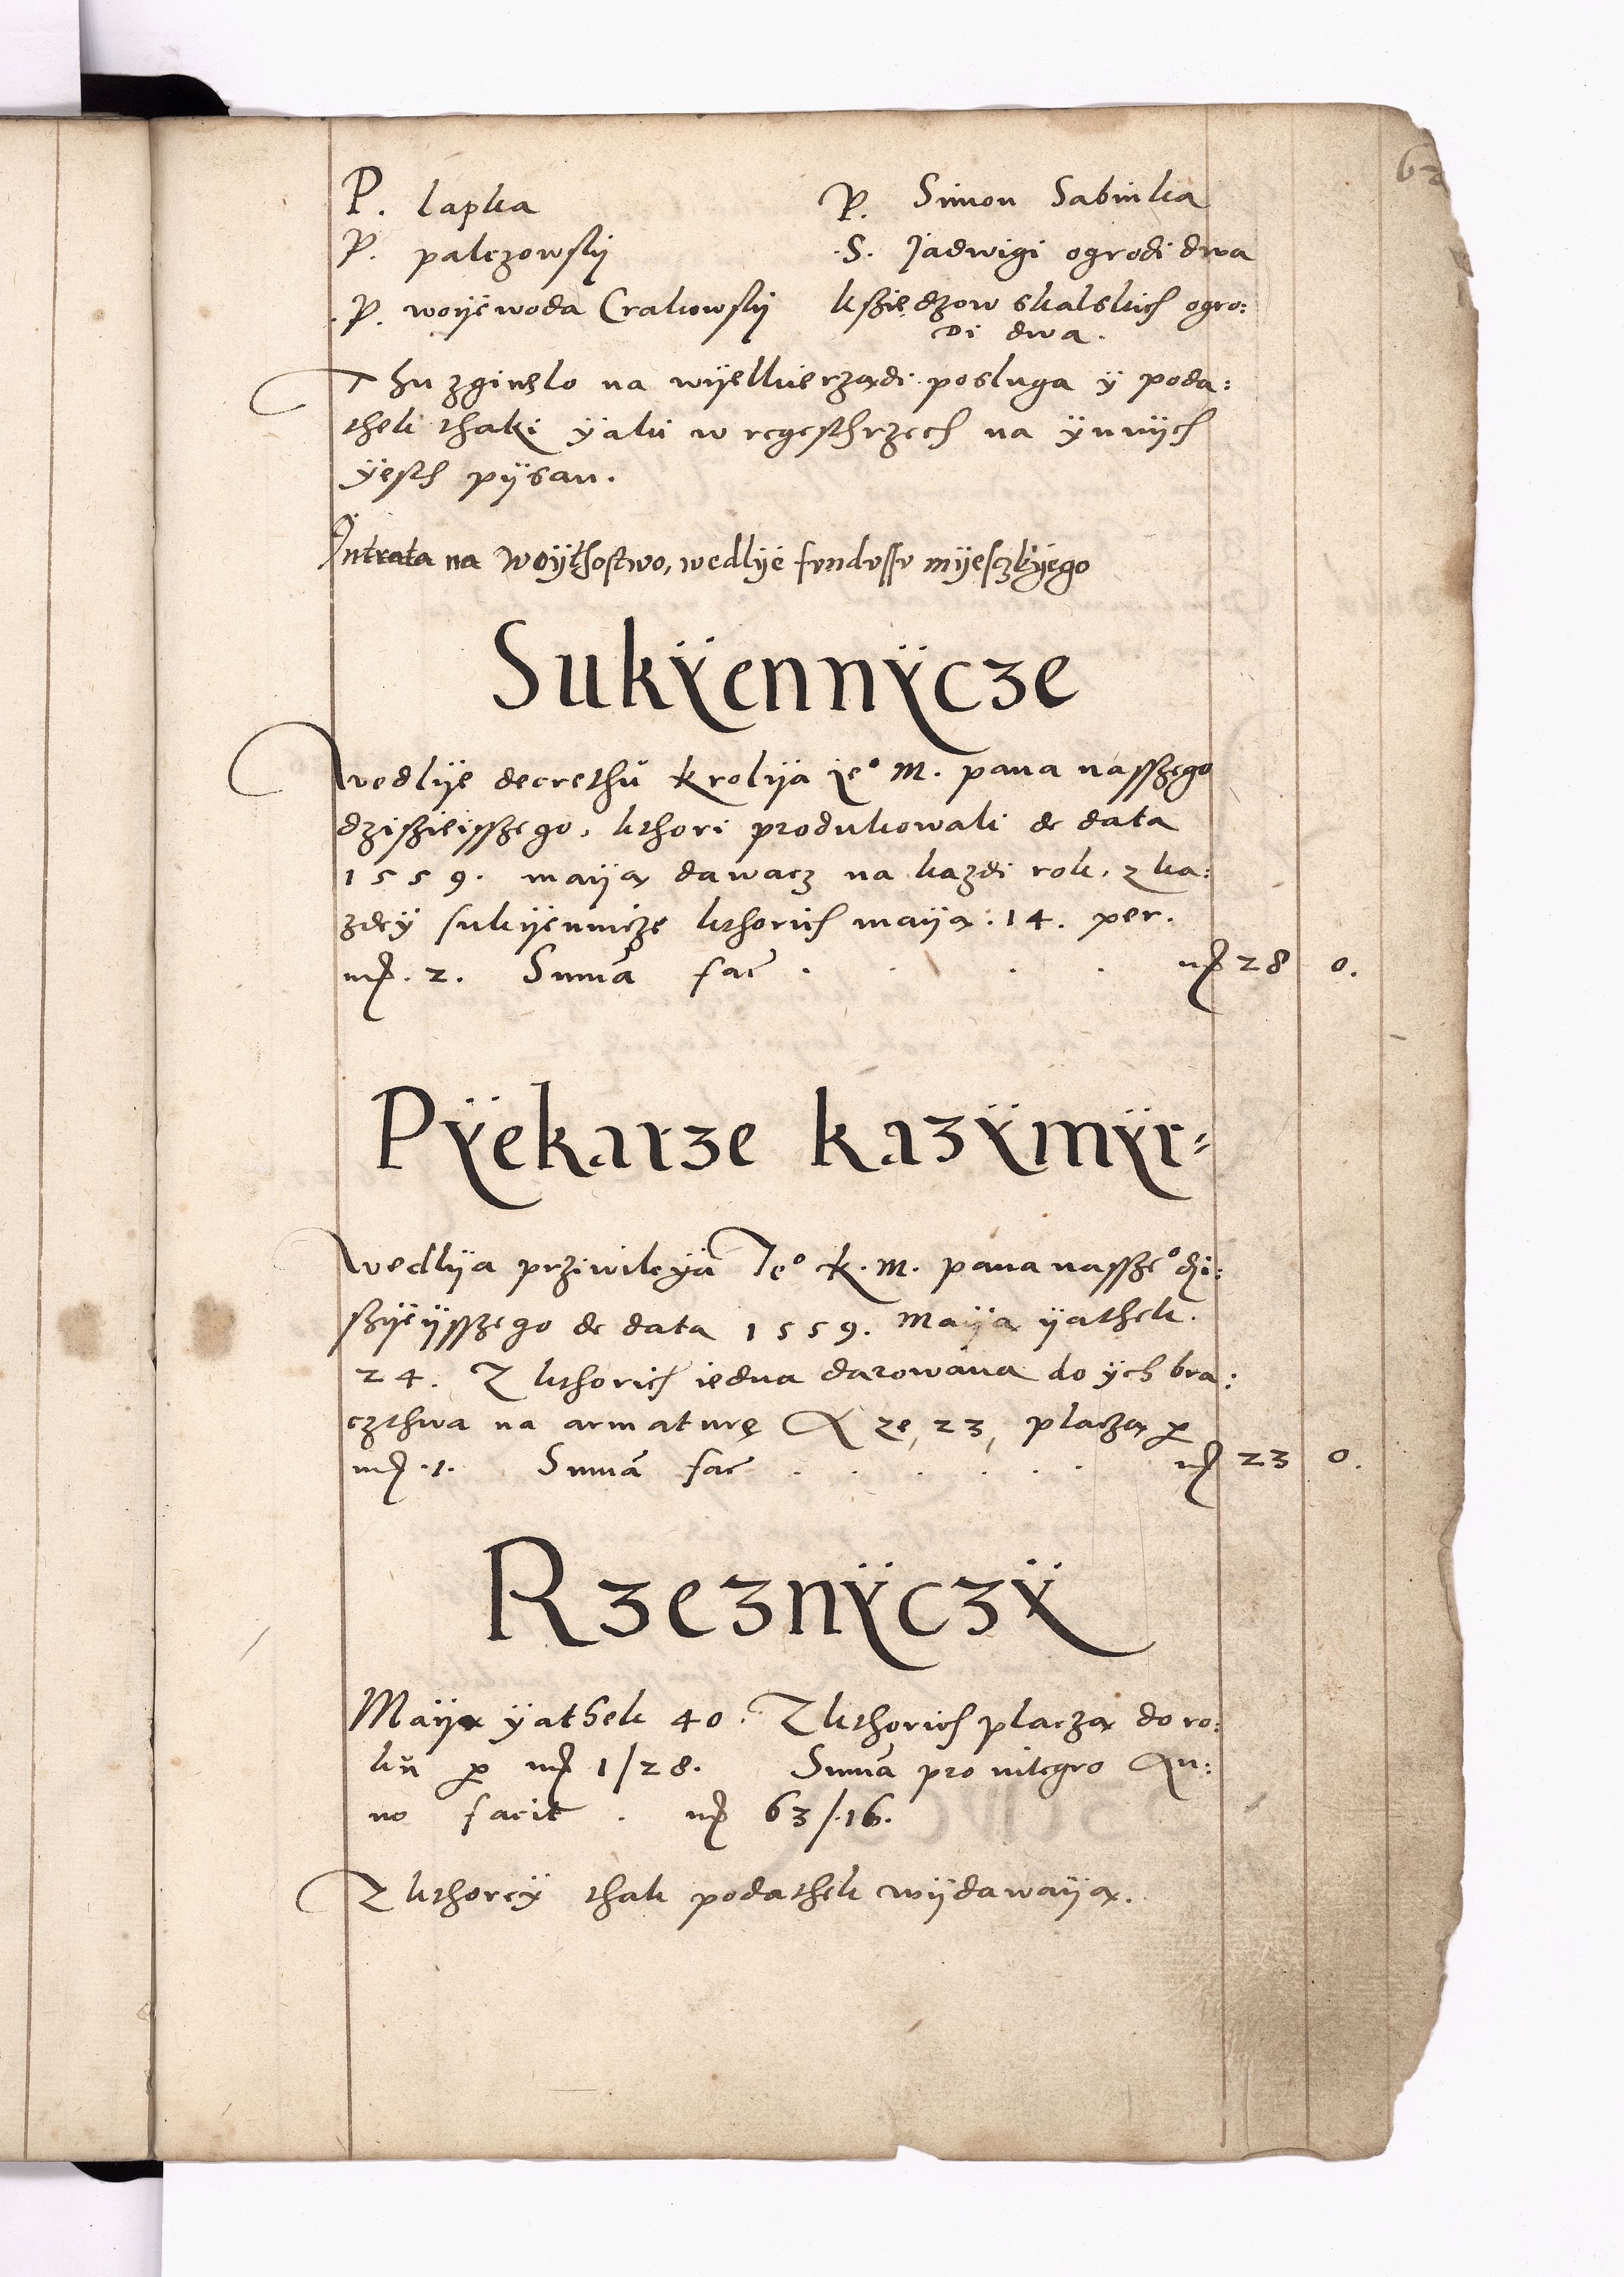 62
P. lapka
P. palczowskÿ
P. woÿewoda Crakowskÿ
P. Simon Sabinka
S. Jadwigi ogrodi dwa
kszię dzow skalskich ogro:
di dwa.
Thu zginęlo na wÿelkierzędi posluga ÿ poda:
thek thaki ÿaki w regesthrzech na ÿnnÿch
ÿesth pÿsan.
Intrata na Woÿthostwo, wedlÿe fvndvssv mÿesczkÿego
Sukÿennÿcze
Wedlÿe decrethu krolÿa Je° M. pana nasszego
dziszieisszego, kthori produkowali de data
1559. maÿą dawacz na kazdi rok, z ka:
zdeÿ sukÿennicze kthorich maÿą. 14. per.
mr. 2. Summa fac . . . . mr 28 0.
Pÿekarze kazÿmÿr=
Wedlÿa prziwileÿa Je° K. M. pana nassze° dzi:
szÿeÿsszego de data 1559. Maÿą ÿathek.
24. Z kthorich iedna darowana do ÿch bra:
czthwa na armaturę A ze, 23, placzą per
mr. 1. Summa fac . . . . . . mr 23 0.
Rzeznÿczÿ
Maÿą ÿathek 40. Z kthorich placzą do ro:
ku per mr 1/28. Summa pro integro An:
no facit . mr 63/.16.
Z kthoreÿ thak podathek wÿdawaÿą.